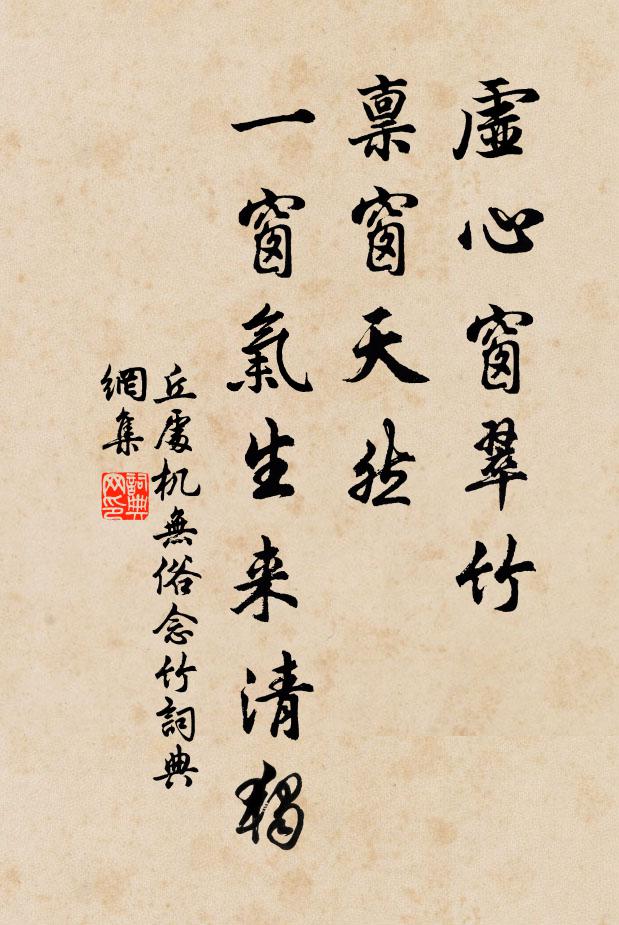 虛心窗翠竹
稟窗天然
一窗氣生来清獨
丘處机無俗念竹詞典
網集
詞典
网印